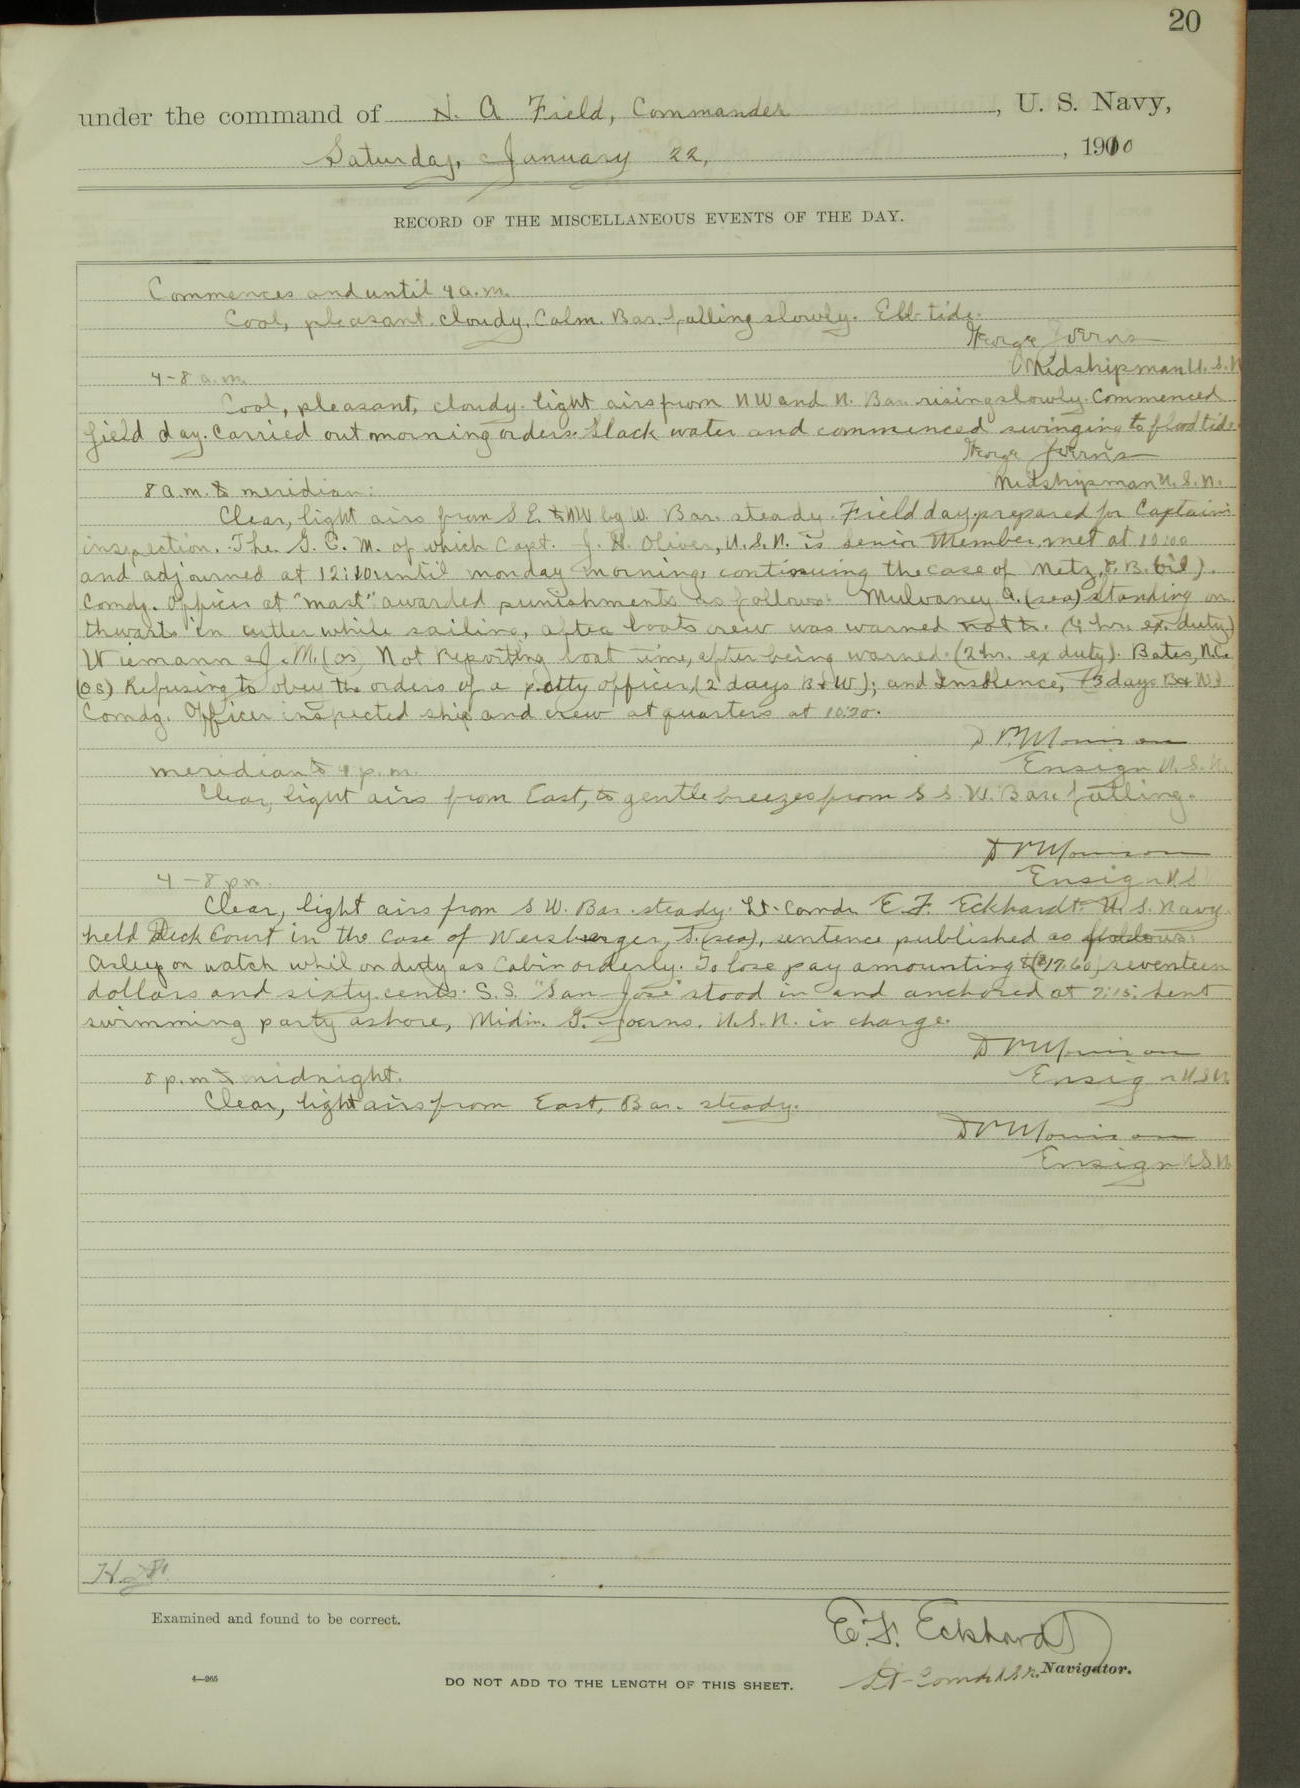 20
under the command of N. A Field, Commander, U. S. Navy,
Saturday, January 22, , 1910
RECORD OF THE MISCELLANEOUS EVENTS OF THE DAY.
Commences and until 4 a.m.
Cool, pleasant. cloudy. Calm. Bar. falling slowly. Ebb tide.
George Joerns
Midshipman U. S. N
4-8 a.m.
Cool, pleasant, cloudy. light airs from NW and N. Bar. rising slowly. Commenced
field day. Carried out morning orders. Slack water and commenced swinging to flood tide.
George Joerns
Midshipman U. S. N.
8 a.m. to meridian:
Clear, light airs from S E. to NW by W. Bar. steady. Field day. prepared for Captain's
inspection. The G. C. M. of which Capt. J. H. Oliver, U.S.N. is senior Member met at 10:00
and adjourned at 12:10 until monday morning, continuing the case of Metz, B.
Comdg. Officer at "mast" awarded punishments as follows: Mulvaney (sea) standing on
thwarts in cutter while sailing, after boats crew was warned not to. (4 hr. ex duty)
Wiemann J. M. (os) Not reporting boat time, after being warned. (2 hr. ex duty). Bates,
(os) Refusing to obey the orders of a petty officer, (2 days B & W); and Insolence, (3 days B & W)
Comdg. Officer inspected ship and crew at quarters at 10:20.
D M Morrison
Ensign U. S. N.
meridian to 4 p. m.
Clear, light airs from East, to gentle breezes from S S. W. Bar. falling.
D M Morrison
Ensign U S
4-8 pm.
Clear, light airs from S W. Bar. steady. Lt. Comdr E. F. Eckhardt. U. S. Navy
held Deck Court in the case of Weisberger, S. (sea), sentence published as follows:
Asleep on watch whil on duty as Cabin orderly. To lose pay amounting to ($17.60) seventeen
dollars and sixty cents. S.S. "San Jose" stood in and anchored at 7:15. sent
swimming party ashore, Midn. G. Joerns. U.S.N. in charge.
D M Morrison
Ensign U S N
8 p.m. to midnight.
Clear, light airs from East, Bar. steady.
D M Morrison
Ensign U S N
Examined and found to be correct.
E. F. Eckhardt
Lt-Comdr U S N. Navigator.
4—265
DO NOT ADD TO THE LENGTH OF THIS SHEET.